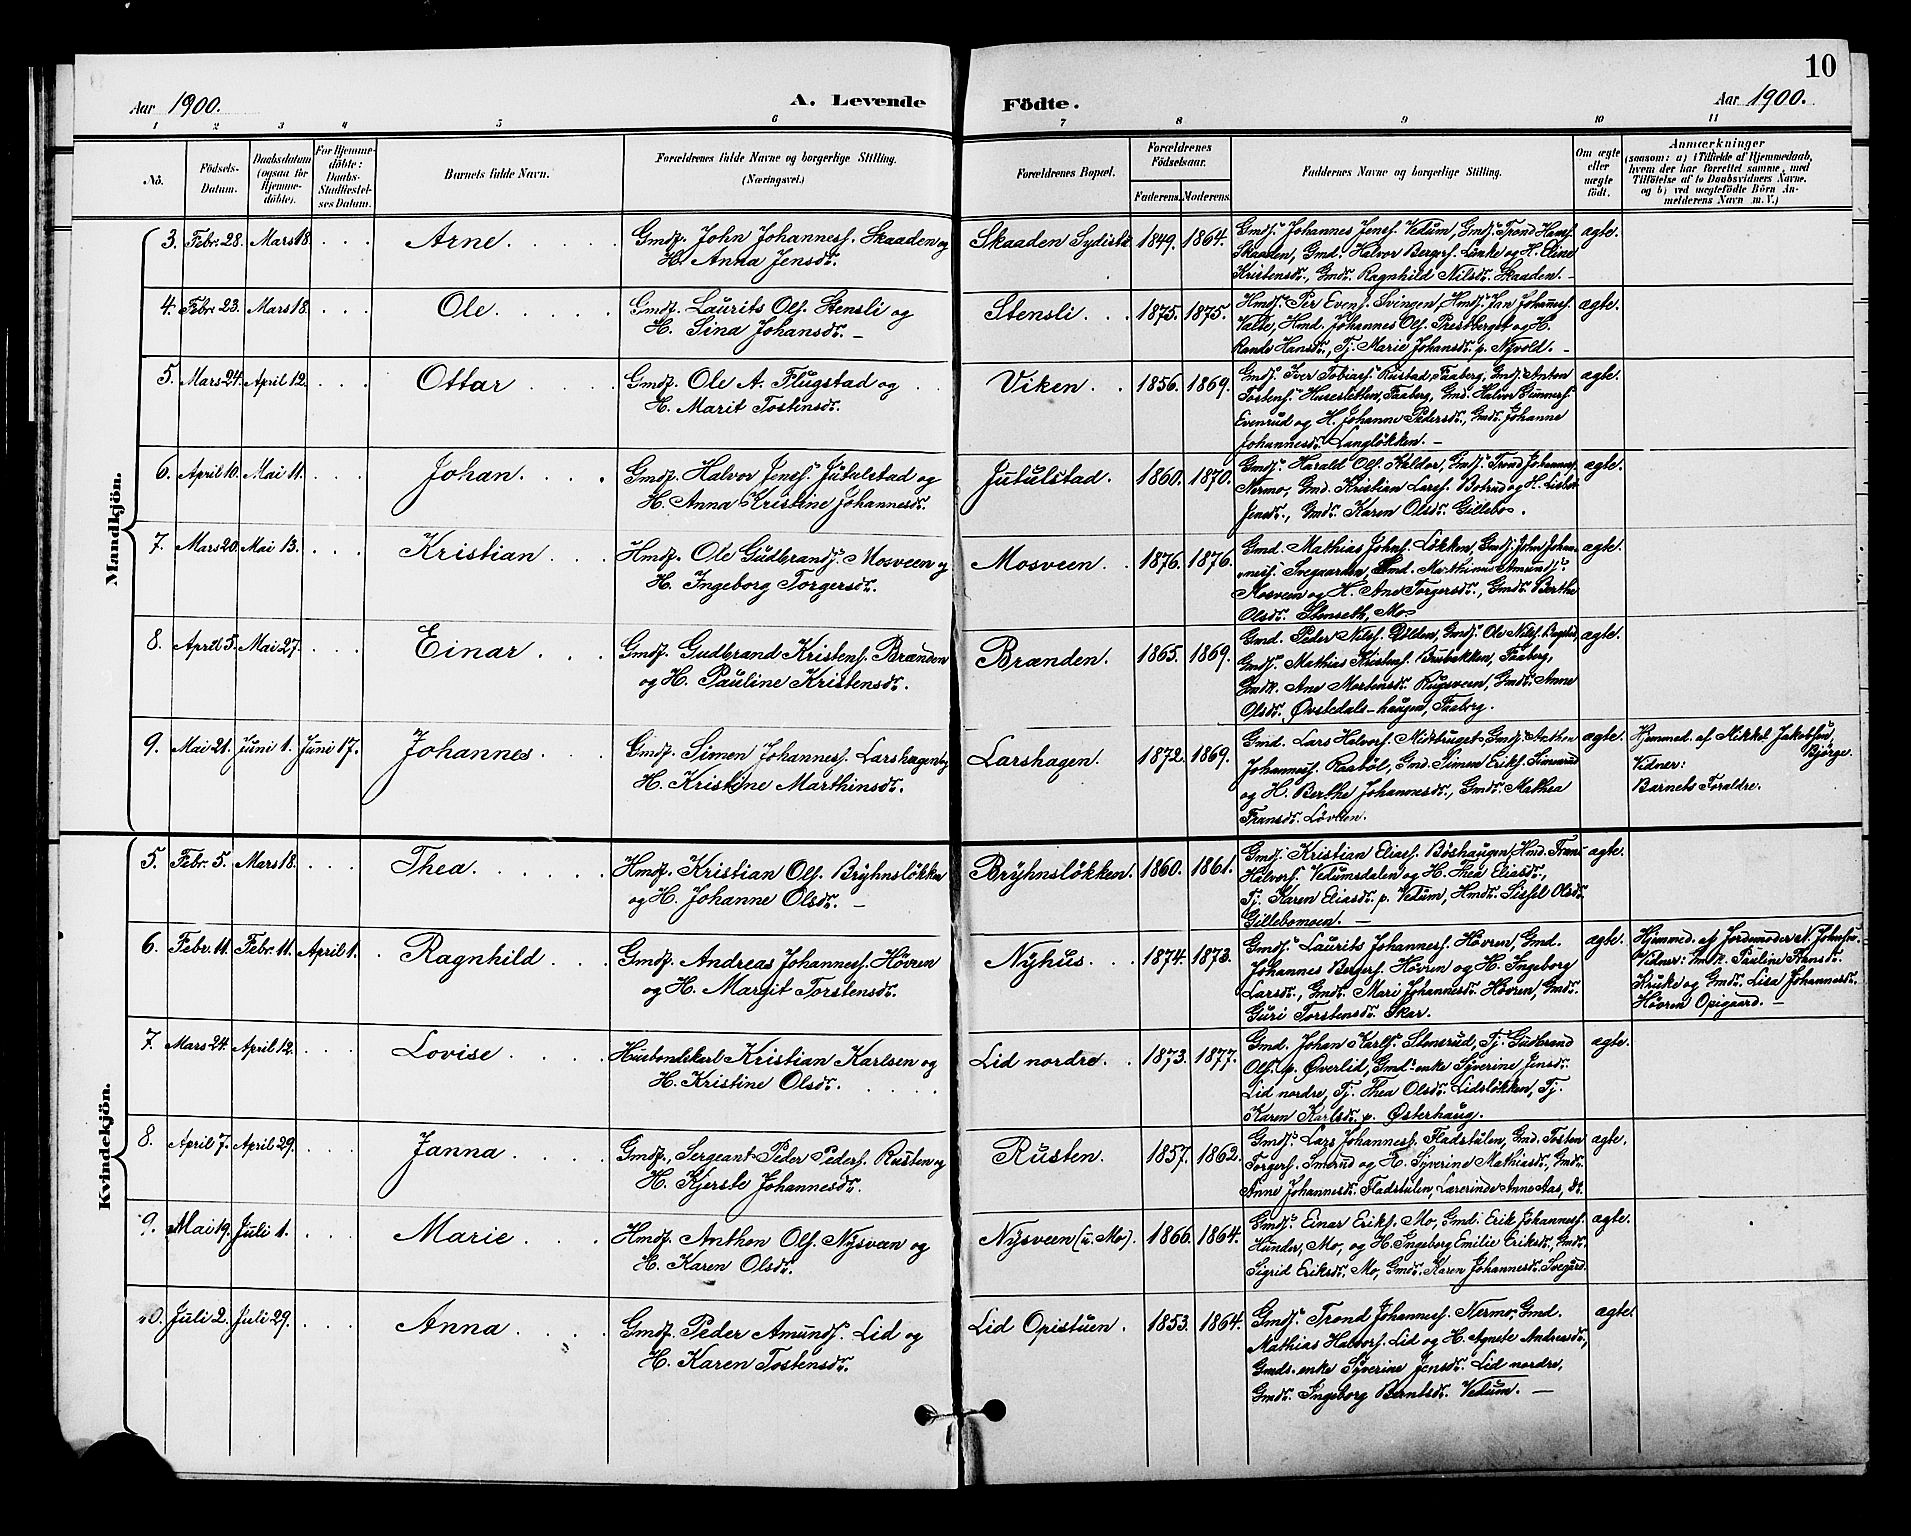 10
Aar 1900.
A. Levende Födte.
Aar 1900.
1 2 3 4 5 6 7 8 9 10 11
No.
Födsels-Datum.
Daabsdatum (ogsaa for Hjemmedöbte).
For Hjemmedöbte: Daabs-Stadfæstelses Datum.
Barnets fulde Navn.
Forældrenes fulde Navne og borgerlige Stilling. (Næringsvei.)
Forældrenes Bopæl.
Forældrenes Födselsaar.
Faderens. Moderens.
Faddernes Navne og borgerlige Stilling.
Om ægte eller uægte födt.
Anmærkninger
(saasom: a) i Tilfælde af Hjemmedaab,
hvem der har forrettet samme, med
Tilföielse af to Daabsvidners Navne,
og b) ved uægtefödte Börn Anmelderens Navn m. V.)
Mandkjön.
3. Febr. 28. Mars 18. Arne.
Gmdf. John Johannesf. Skaaden og
H. Anna Jensdr.
Skaaden Sydistu 1849. 1864.
Gmdf. Johannes Jensf. Vedum, Gmdf. Trond Hansf.
Skaaden, Gmd. Halvor Bergersf. Lunke og H. Eline
Kristensdr., Gmdr. Ragnhild Nilsdr. Skaaden.
ægte.
4. Febr. 23. Mars 18. Ole.
Gmdf. Laurits Olsf. Stensli og
H. Sina Johansdr.
Stensli. 1875. 1875.
Hmdf. Per Evensf. Svingen, Hmdf. Johannesf.
Valte, Hmd. Johannes Olsf. Prestberget og H.
Randi Hansdr., Tj. Marie Johansdr. p. Nyvold.
ægte.
5. Mars 24. April 12. Ottar
Gmdf. Ole A. Flugstad og
H. Marit Tostensdr.
Viken. 1856. 1869.
Gmdf. Iver Tobiasf. Rustad, Faaberg, Gmdf. Anton
Tostensf. Husesletten, Faaberg, Gmd. Halvor Gunnersf.
Evenrud og H. Johanne Pedersdr., Gmdr. Johanne
Johannesdr. Langløkken.
ægte.
6. April 10. Mai 11. Johan.
Gmdf. Halvor Jensf. Jutulstad og
H. Anna Kristine Johannesdr.
Jutulstad. 1860. 1870.
Gmdf. Harald Olsf. Kaldor, Gmdf. Trond Johannesf.
Nermo, Gmd. Kristian Larsf. Botrud og H. Lisbet
Jensdr., Gmdr. Karen Olsdr. Gillebo.
ægte.
7. Mars 20. Mai 13. Kristian
Hmdf. Ole Gudbrandsf. Mosveen og
H. Ingeborg Torgersdr.
Mosveen. 1876. 1876.
Gmd. Mathias Johnsf. Løkken, Gmdf. John Johannesf. Svegaarden, Gmd. Marthinus Amundsf.
Mosveen og H. Ane Torgersdr., Gmdr. Berthe
Olsdr. Stenseth, Mo
ægte.
8. April 5. Mai 27. Einar
Gmdf. Gudbrand Kristensf. Brænden
og H. Pauline Kristensdr.
Brænden. 1865. 1869.
Gmd. Peder Nilsf. Dølden, Gmdf. Ole Nilsf.
Gmdf. Mathias Kristensf. Busbakken, Faaberg,
Gmdk. Ane Mortensdr. Rugsveen, Gmdr. Anne
Olsdr. Øvstedals-haugen, Faaberg.
ægte.
9. Mai 21. Juni 1. Juni 17. Johannes
Gmdf. Simen Johannesf. Larshagen og
H. Kristine Marthinsdr.
Larshagen. 1872. 1869.
Gmd. Lars Halvorsf. Midtbruget, Gmdf. Anthon
Johannesf. Raabøl, Gmd. Simen Eriksf. Simerud
og H. Berthe Johannesdr., Gmdr. Mathea
Fransdr. Løvlien.
ægte.
Hjemmed. af Mikkel Jakobsen,
Bjørge.
Vidner:
Barnets Forældre.
Kvindekjön.
5. Febr. 5. Mars 18. Thea.
Hmdf. Kristian Olsf. Bryhnsløkken
og H. Johanne Olsdr.
Bryhnsløkken. 1860. 1861.
Gmdf. Kristian Eliasf. Bøshaugen, Hmd. Frans
Halvorsf. Vedumsdalen og H. Thea Eliasdr.,
Tj. Karen Eliasdr. p. Vedum, Hmdr. Sissel Olsdr.
Gillebomoen.
ægte.
6. Febr. 11. Febr. 11. April 1. Ragnhild
Gmdf. Andreas Johannesf. Høvren
og H. Margit Torstensdr.
Nyhus. 1874. 1873.
Gmdf. Laurits Johannesf. Høvren, Gmd.
Johannes Bergersf. Høvren og H. Ingeborg
Larsdr., Gmdr. Mari Johannesdr. Høvren, Gmdr.
Guri Torstensdr. Skar.
ægte.
Hjemmed. af Jordemoder N. Johnsen.
Vidner: Gmdk. Pauline Arnsdr.
Kruke og Gmdr. Lisa Johannesdr.
Høvren Opigaard.
7. Mars 24. April 12. Lovise
Husbondskarl Kristian Karlsen og
H. Kristine Olsdr.
Lid nordre. 1873. 1877.
Gmd. Johan Karlsf. Stensrud, Tj. Gudbrand
Olsf. p. Øverlid, Gmd-enke Syverine Jensdr.
Lid nordre, Tj. Thea Olsdr. Lidsløkken, Tj.
Karen Karlsdr. p. Østerhaug.
ægte.
8. April 7. April 29. Janna
Gmdf. Sergeant Peder Pedersf. Rusten og
H. Kjersti Johannesdr.
Rusten. 1857. 1862.
Gmdf. Lars Johannesf. Fladstulen, Gmd. Tosten
Torgersf. Smerud og H. Syverine Mathiasdr., Gmdr.
Anne Johannesdr. Fladstulen, Lærerinde Anne Aas, dt.
ægte.
9. Mai 19. Juli 1. Marie
Hmdf. Anthon Olsf. Nysveen og
H. Karen Olsdr.
Nysveen (u. Mo). 1866. 1864.
Gmdf. Einar Eriksf. Mo, Gmd. Erik Johannesf.
Hunder, Mo, og H. Ingeborg Emilie Eriksdr., Gmdr.
Sigrid Eriksdr. Mo, Gmdr. Karen Johannesdr. Svegård.
ægte.
10. Juli 2. Juli 29. Anna
Gmdf. Peder Amundsf. Lid og
H. Karen Tostensdr.
Lid Opistuen. 1853. 1864.
Gmdf. Trond Johannesf. Nermo, Gmd.
Mathias Halvorsf. Lid og H. Agnete Andreasdr.,
Gmds. enke Syverine Jensdr. Lid nordre,
Gmdr. Ingeborg Berntsdr. Vedum.
ægte.